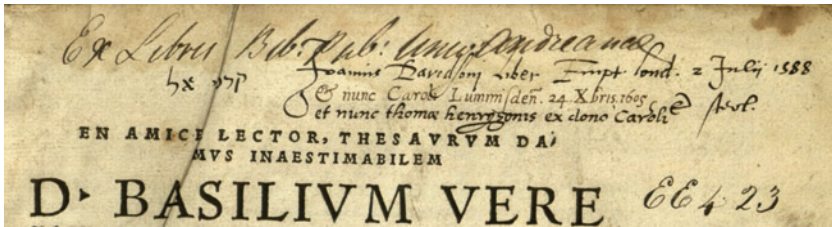 Ex Libris Bib: Pub: Univ: Andreanae
Joannis Davidsonj liber Empt lond. 2 Julij 1588
קרני אל
& nunc Caroli Lummisdeñ. 24 Xbris. 1605
et nunc thomæ henrysonis ex dono Caroli
EN AMICE LECTOR, THESAVRVM DA⸗
MVS INAESTIMABILEM
D. BASILIVM VERE
EE 4 23